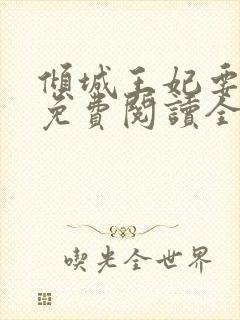 傾城王妃要
免費閱讀全
喫光全世界